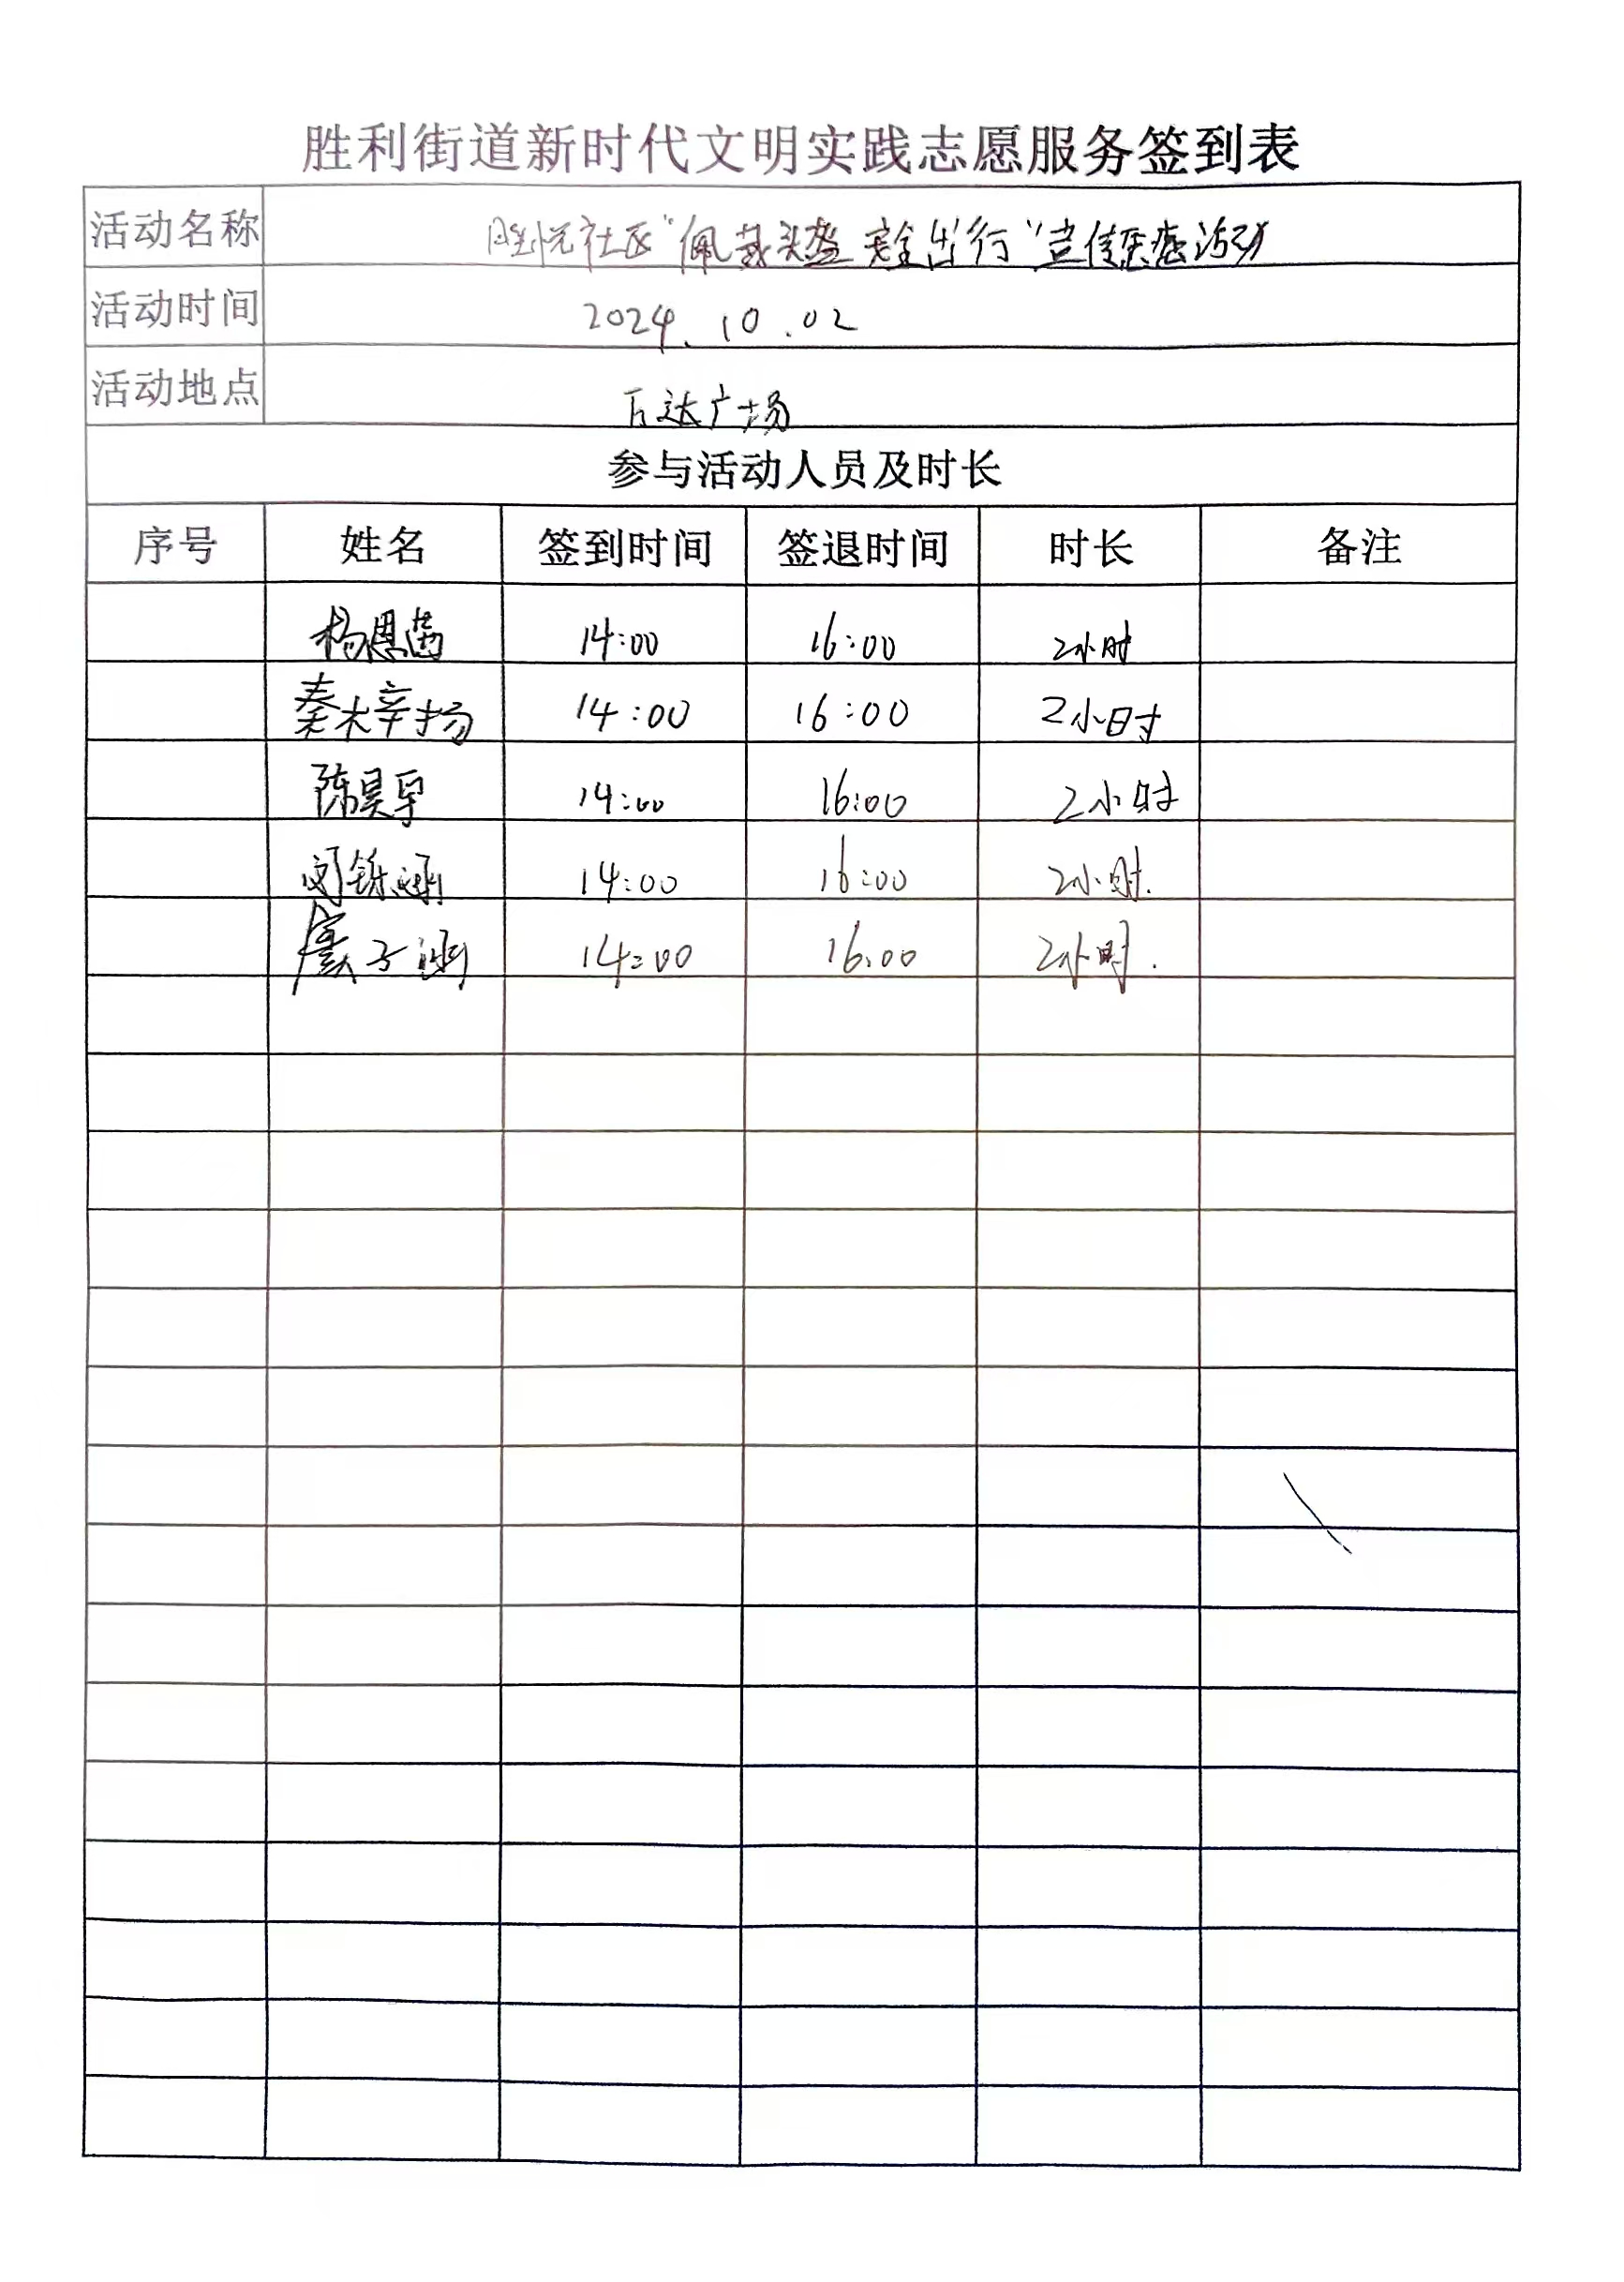 胜利街道新时代文明实践志愿服务签到表
活动名称 胜悦社区"佩戴头盔 安全出行"宣传志愿活动
活动时间 2024.10.02
活动地点 万达广场
参与活动人员及时长
序号 姓名 签到时间 签退时间 时长 备注
杨恩茜 14:00 16:00 2小时
秦木辛扬 14:00 16:00 2小时
陈昊孚 14:00 16:00 2小时
闵铄涵 14:00 16:00 2小时.
子涵 14:00 16:00 2小时.